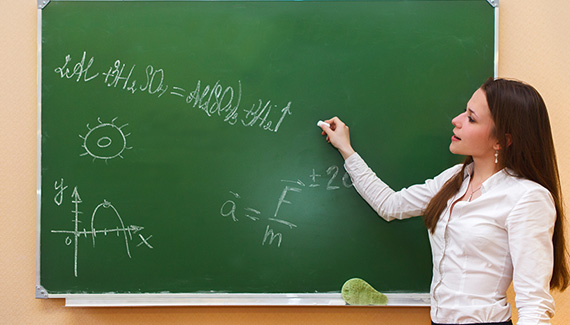 2Al + 3H₂SO₄ = Al₂(SO₄)₃ + 3H₂↑
y
0
x
a⃗ = F⃗/m
± 2